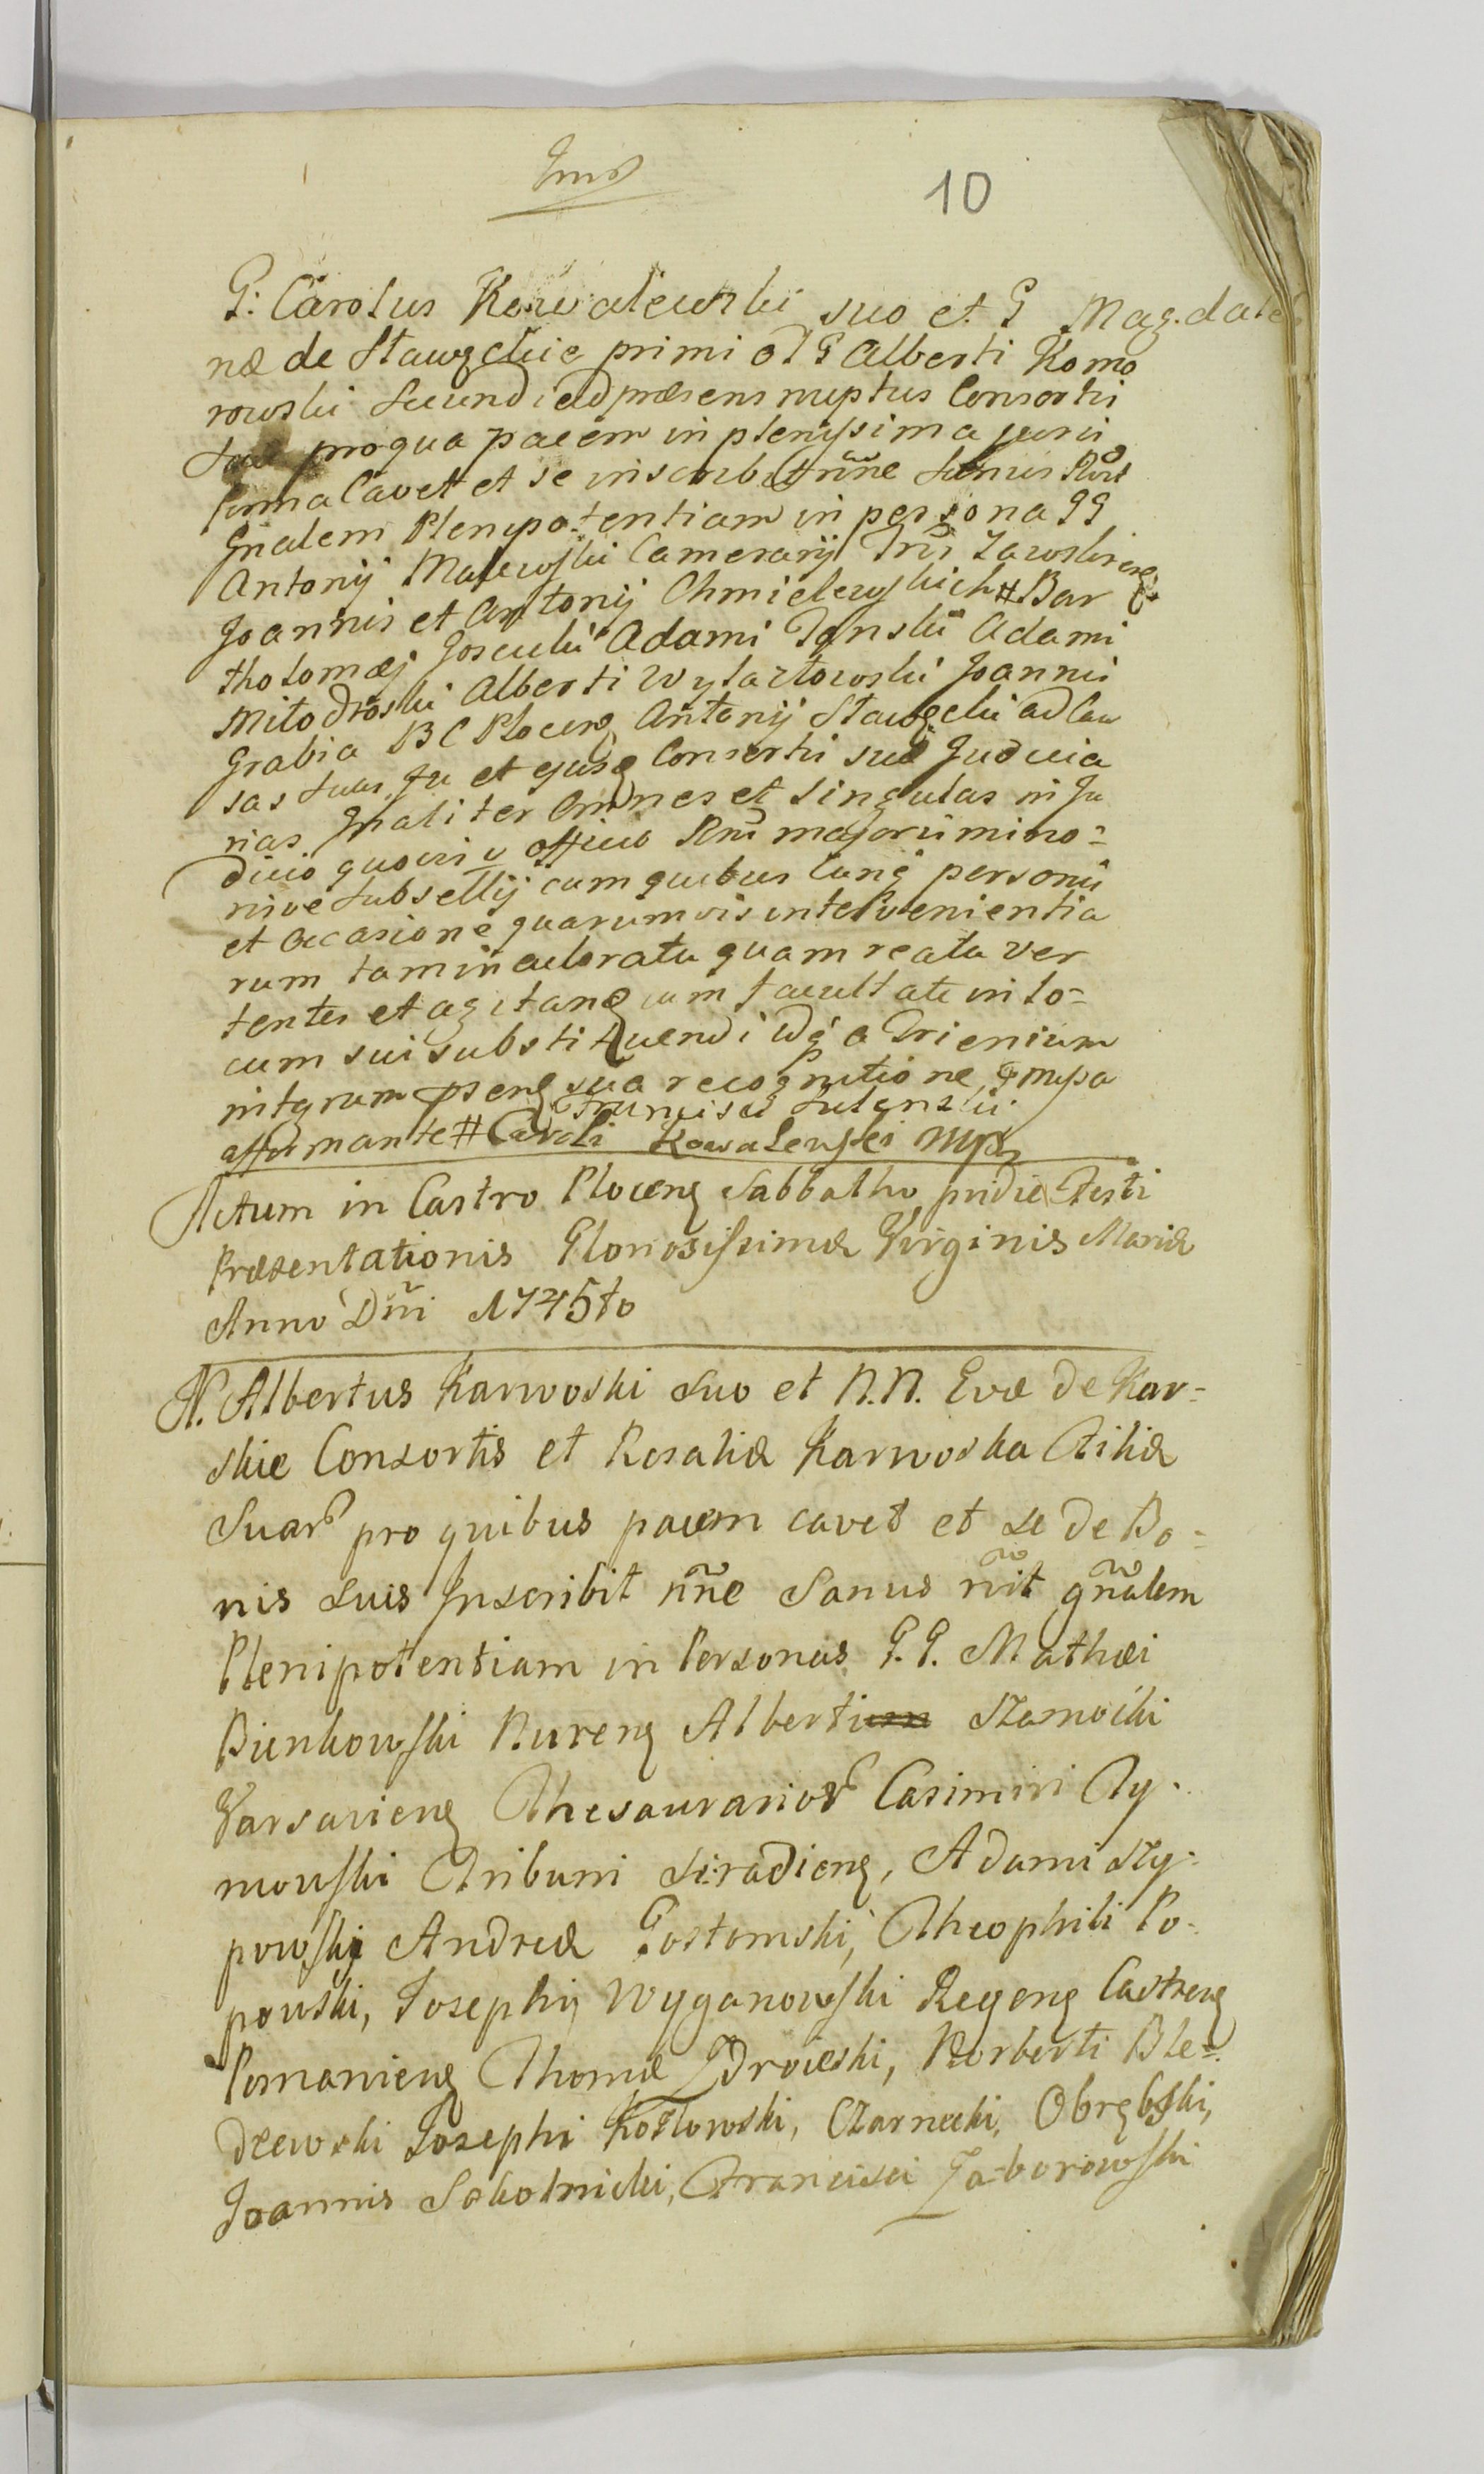 10
G: Carolus Kowalewski suo et G Magdale
næ de Stawgckie primi olG Alberti Komo
rowski Secundi ad præsens nuptus Consortis
Suæ pro qua pacem in plenissima juris
forma Cavet et se inscribit nñe Sanus
Gnalem Plenipotentiam in persona GG
Antonij Camerarij Joannis et Antonij Chmielewskich # Bar
tholomæj Gosculii Adami Adami
Alberti Wylazłowski Joannis
Grabia B C Plocen Antonij ad Cau
sas Suas et ejusq Consortis suæ Judicia
rias Gnaliter Omnes et Singulas in Ju
dicio quovis v officio Rni majori mino=
rive Subsellij cum quibus cunq personis
et occasione quarumvis intervenientia
rum tam in quam reatu ver
tentes et agitan cum facultate in lo=
cum sui substituendi idq a Trienium
integrum psen sua recognitione mpa
Francisci
affirmante # Caroli Kowalewski mpa
Actum in Castro Plocen Sabbatho pridie Festi
Præsentationis Gloriosissimæ Virginis Mariæ
Anno Dñi 1745to
N. Albertus Karwoski Suo et N.N. Evæ de Kar=
skie Consortis et Rosaliæ Karwoska Filiæ
Suar pro quibus pacem cavet et se de Bo=
nis Suis Inscribit nñe Sanus rñit gñalem
Plenipotentiam in Personas G.G. Mathæi
Bienkowski Nuren Alberti Szamocki
Varsavien Thesaurarior Casimiri Ty=
mowski Tribuni Siradien, Adami Szy=
powski Andreæ Gostomski, Theophili Po=
powski, Josephi Wyganowski Regen Castren
Posnanien Thomæ Zdroieski, Norberti Ble=
dzewski Josephi Kozłowski, Czarnecki, Obrębski,
Joannis Sokolnicki, Francisci Zaborowski